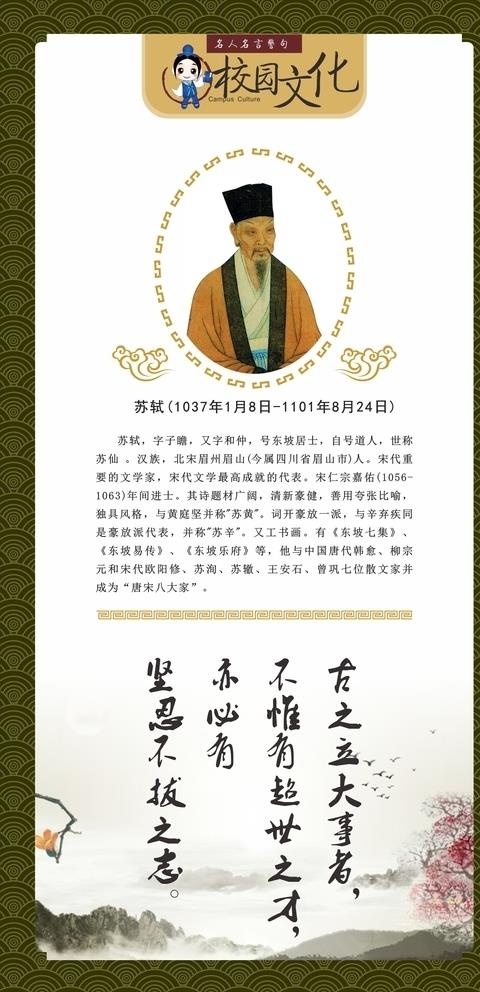 名人名言警句
校园文化
Campus Culture
苏轼(1037年1月8日-1101年8月24日)
苏轼，字子瞻，又字和仲，号东坡居士，自号道人，世称
苏仙 。汉族，北宋眉州眉山(今属四川省眉山市)人。宋代重
要的文学家，宋代文学最高成就的代表。宋仁宗嘉佑(1056-
1063)年间进士。其诗题材广阔，清新豪健，善用夸张比喻，
独具风格，与黄庭坚并称"苏黄"。词开豪放一派，与辛弃疾同
是豪放派代表，并称"苏辛"。又工书画。有《东坡七集》、
《东坡易传》、《东坡乐府》等，他与中国唐代韩愈、柳宗
元和宋代欧阳修、苏洵、苏辙、王安石、曾巩七位散文家并
成为“唐宋八大家”。
古之立大事者，
不惟有超世之才，
亦必有
坚忍不拔之志。